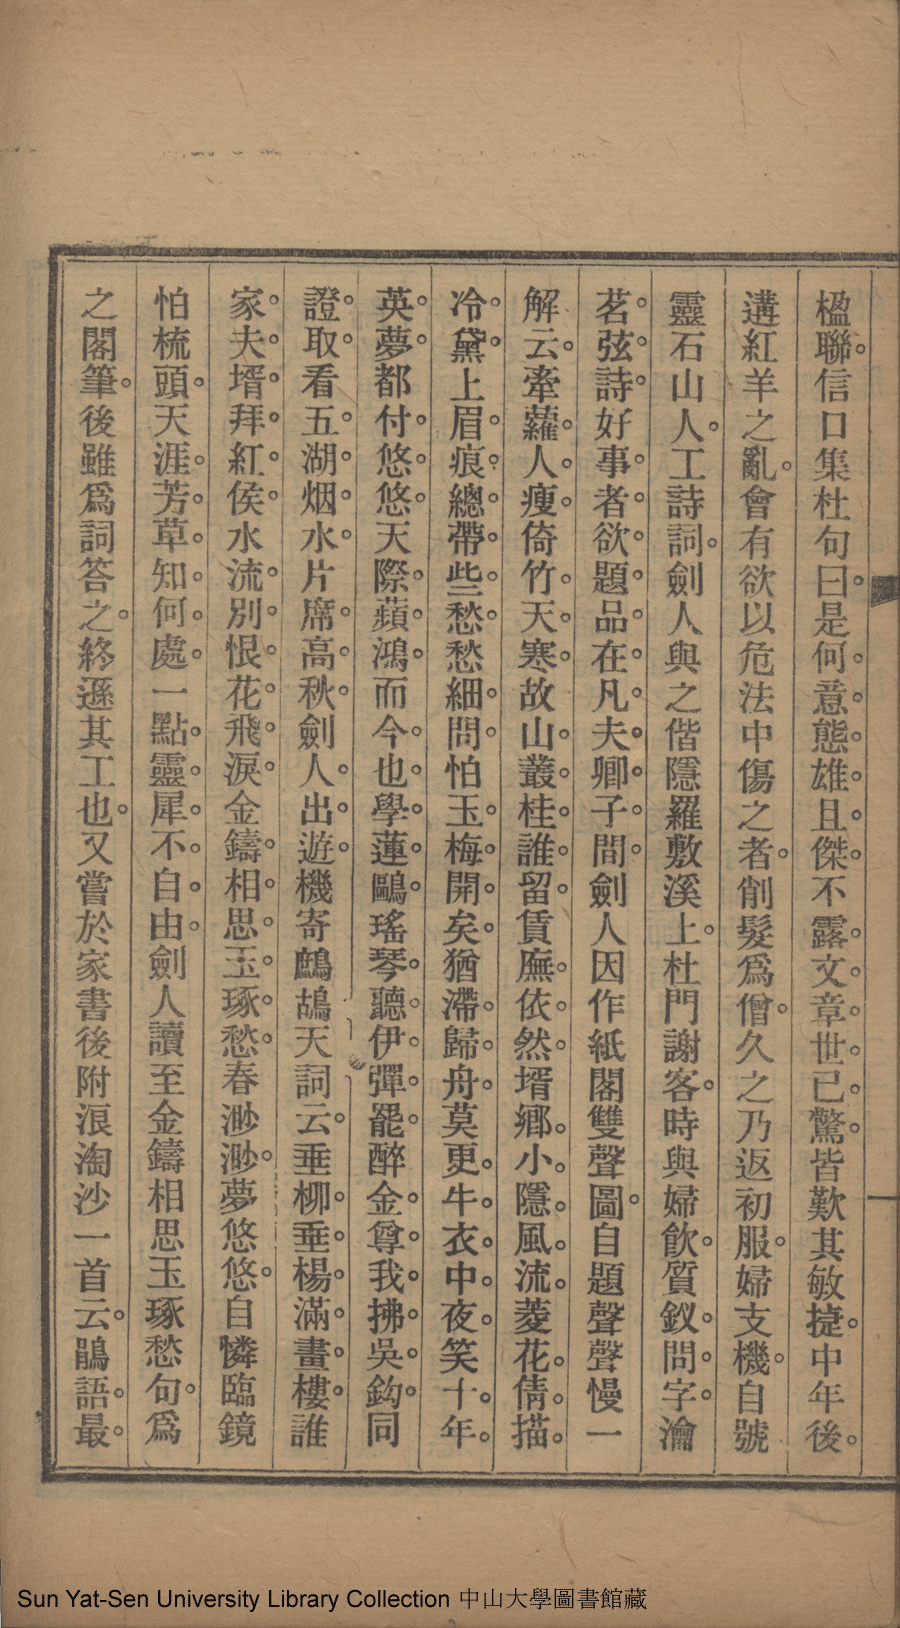 楹聯信口集杜句曰是何意態雄且傑不露文章世已驚皆歎其敏捷中年後
遘紅羊之亂會有欲以危法中傷之者削髮爲僧久之乃返初服婦支機自號
靈石山人工詩詞劍人與之偕隱羅敷溪上杜門謝客時與婦飲質釵問字瀹
茗弦詩好事者欲題品在凡夫卿子間劍人因作紙閣雙聲圖自題聲聲慢一
解云牽蘿人瘦倚竹天寒故山叢桂誰留賃廡依然壻鄉小隱風流菱花倩描
冷黛上眉痕總帶些愁愁細問怕玉梅開矣猶滯歸舟莫更牛衣中夜笑十年
英夢都付悠悠天際蘋鴻而今也學蓮鷗瑤琴聽伊彈罷醉金尊我拂吳鈎同
證取看五湖烟水片席高秋劍人出遊機寄鷓鴣天詞云垂柳垂楊滿畫樓誰
家夫壻拜紅侯水流別恨花飛淚金鑄相思玉琢愁春渺渺夢悠悠自憐臨鏡
怕梳頭天涯芳草知何處一點靈犀不自由劍人讀至金鑄相思玉琢愁句爲
之閣筆後雖爲詞答之終遜其工也又嘗於家書後附浪淘沙一首云鵑語最
Sun Yat-Sen University Library Collection 中山大學圖書館藏